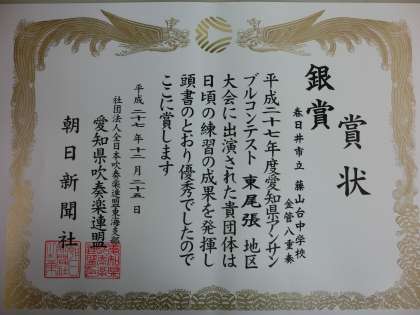 賞状
銀賞
春日井市立 藤山台中学校
金管八重奏
平成二十七年度愛知県アンサン
ブルコンテスト 東尾張 地区
大会に出演された貴団体は
日頃の練習の成果を発揮し
頭書のとおり優秀でしたので
ここに賞します
平成二十七年十二月二十五日
社団法人全日本吹奏楽連盟東海支部
愛知県吹奏楽連盟
朝日新聞社